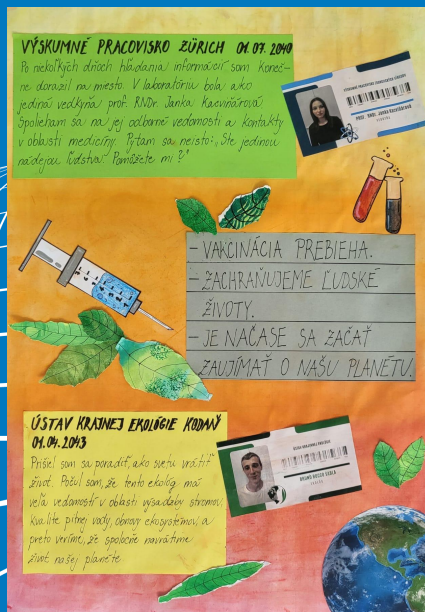 VÝSKUMNÉ PRACOVISKO ZÜRICH 01.07.2040
Po niekoľkých dňoch hľadania informácií som koneč-
ne dorazil na miesto. V laboratóriu bola ako
jediná vedkyňa prof. RNDr. Janka
Spolieham sa na jej odborné vedomosti a kontakty
v oblasti medicíny. Pýtam sa neisto: „Ste jedinou
nádejou ľudstva. Pomôžete mi?"
- VAKCINÁCIA PREBIEHA.
- ZACHRAŇUJEME ĽUDSKÉ
ŽIVOTY.
- JE NAČASE SA ZAČAŤ
ZAUJÍMAŤ O NAŠU PLANÉTU.
ÚSTAV KRAJNEJ EKOLÓGIE KODAŇ
01.04.2043
Prišiel som sa poradiť, ako svetu vrátiť
život. Počul som, že tento ekológ má
veľa vedomostí v oblasti výsadby stromov,
kvality pitnej vody, obnovy ekosystémov, a
preto veríme, že spoločne navrátime
život našej planéte